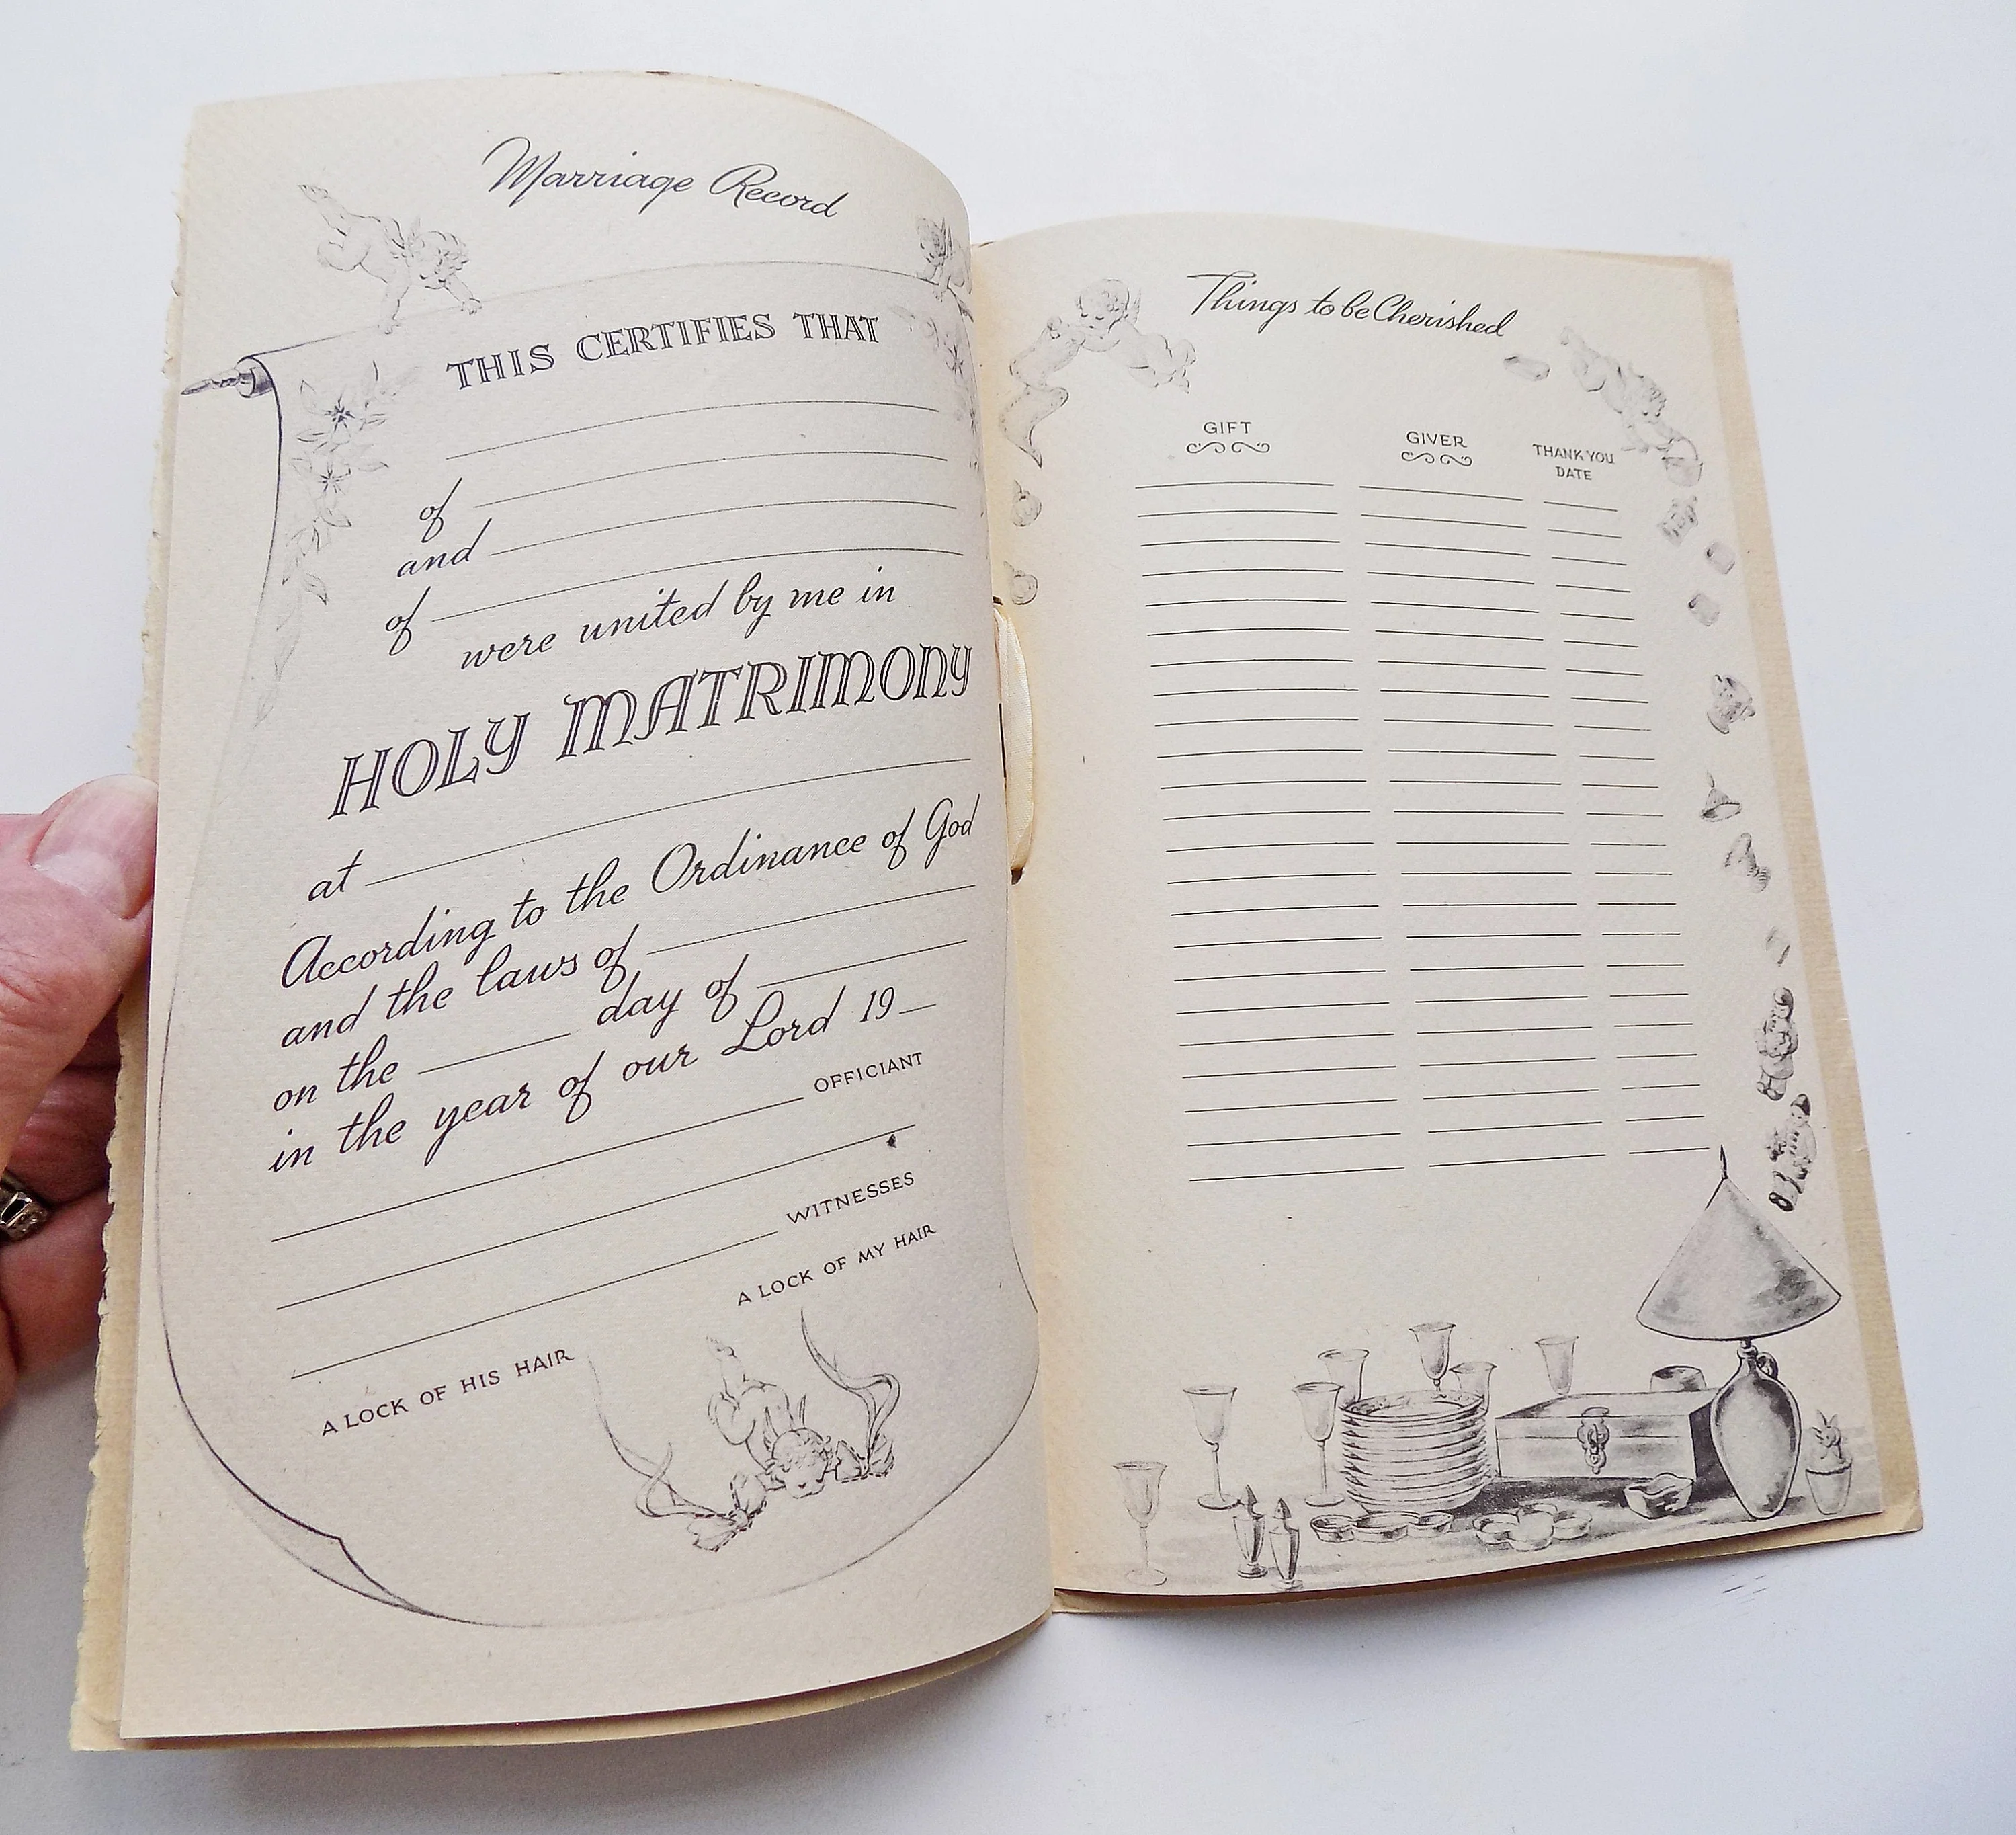 Marriage Record
THIS CERTIFIES THAT
of
and
of
were united by me in
HOLY MATRIMONY
at
According to the Ordinance of God
and the laws of
on the day of
in the year of our Lord 19
OFFICIANT
WITNESSES
A LOCK OF MY HAIR
A LOCK OF HIS HAIR
Things to be Cherished
GIFT
GIVER
THANK YOU
DATE